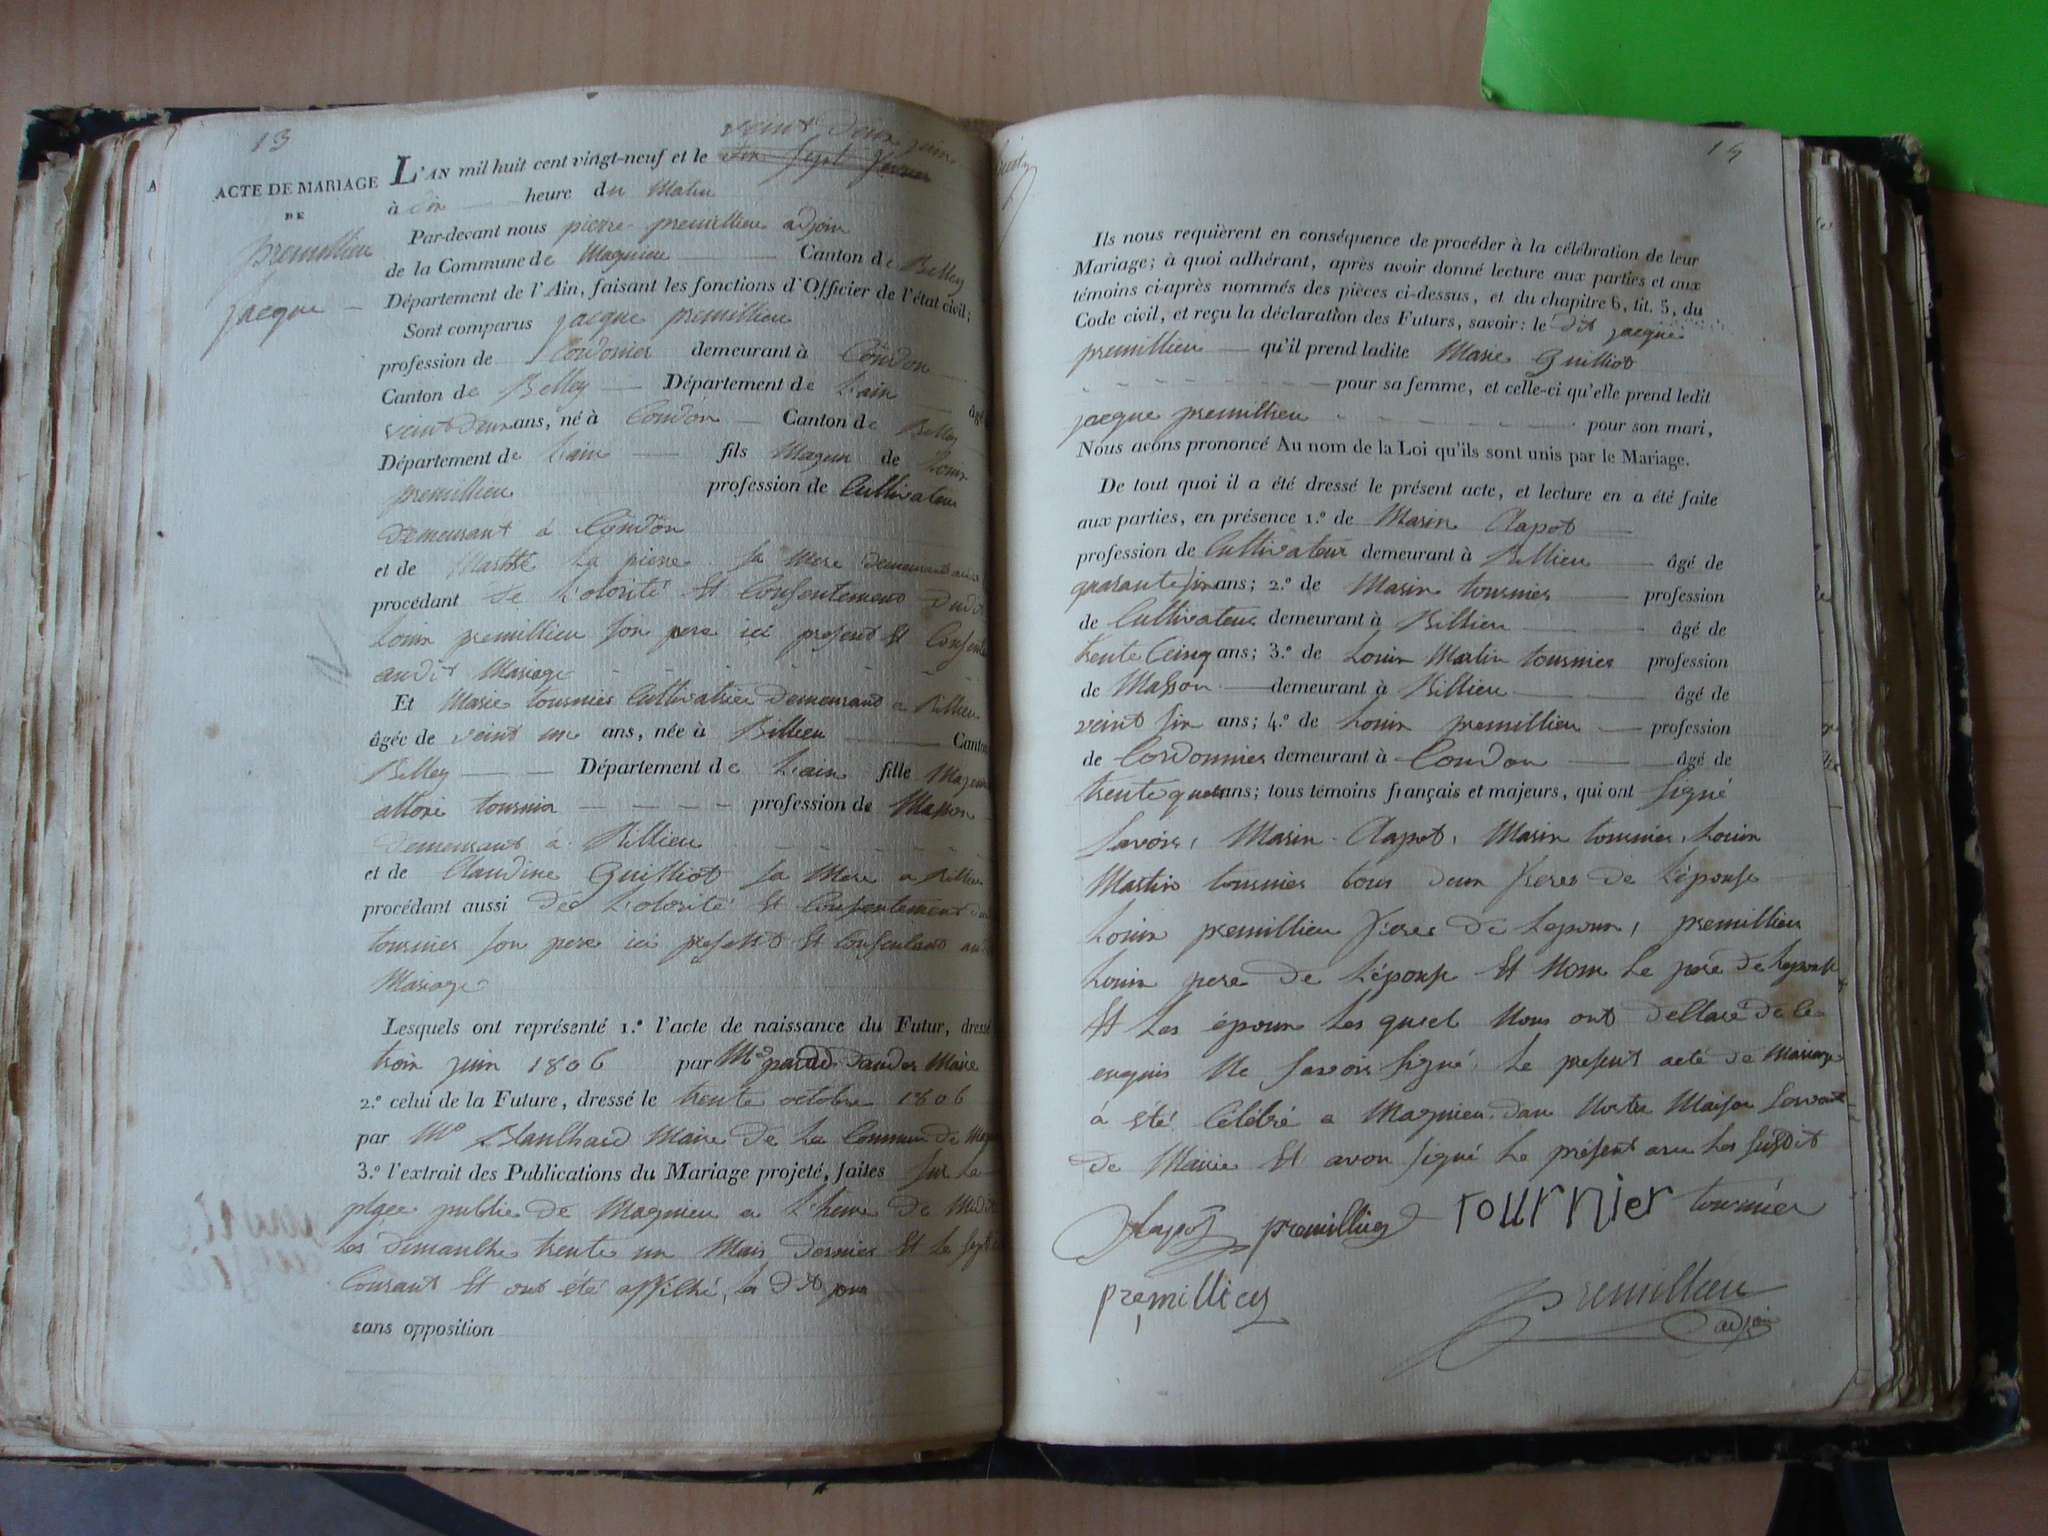 13
ACTE DE MARIAGE
DE
premillieu
jacque
veint deux juin
L'AN mil huit cent vingt-neuf et le dix sept fevrier
à dix heure du Matin
Par-devant nous pierre premillieu adjoin
de la Commune de Magnieu Canton de Belley
Département de l'Ain, faisant les fonctions d'Officier de l'état civil;
Sont comparus jacque premillieu
profession de Cordonier demeurant à Condon
Canton de Belley Département de L'ain âgé
veint deux ans, né à Condon Canton de Belley
Département de L'ain fils Mageur de Louin
premillieu profession de Cultivateur
demeurant à Condon
et de Marthe La pierre sa Mere demeurant
procédant de L'otorité Et Consentement dudit
Louin premillieu son pere ici present Et Consent
audit Mariage
Et Marie tournier Cultivatrice demeurand a Billieu
âgée de veint un ans, née à Billieu Canton
Belley Département de L'ain fille Mageur
tournier profession de Masson
demeurant à Billieu
et de Claudine Guilliot sa Mere a Billieu
procédant aussi de L'otorité Et Consentement du
tournier son pere ici present Et Consentant au
Mariage
Lesquels ont représenté 1.º l'acte de naissance du Futur, dressé
trois juin 1806 par Mr Maire
2.º celui de la Future, dressé le trente octobre 1806
par Mr Maire de La Commune de
3.º l'extrait des Publications du Mariage projeté, faites sur La
place public de Magnieu a L'heure de Midi
Les dimanche trente un Mais dernier Et Le sept
Courant Et ont été affiché, les dit jour
sans opposition
14
Ils nous requièrent en conséquence de procéder à la célébration de leur
Mariage; à quoi adhérant, après avoir donné lecture aux parties et aux
témoins ci-après nommés des pièces ci-dessus, et du chapitre 6, tit. 5, du
Code civil, et reçu la déclaration des Futurs, savoir: le dit jacque
premillieu qu'il prend ladite Marie Guilliot
pour sa femme, et celle-ci qu'elle prend ledit
jacque premillieu pour son mari,
Nous avons prononcé Au nom de la Loi qu'ils sont unis par le Mariage.
De tout quoi il a été dressé le présent acte, et lecture en a été faite
aux parties, en présence 1.º de Marin Clapot
profession de Cultivateur demeurant à Billieu âgé de
quarante six ans; 2.º de Marin tournier profession
de Cultivateur demeurant à Billieu âgé de
trente Ceinq ans; 3.º de Louin Martin tournier profession
de Masson demeurant à Billieu âgé de
veint six ans; 4.º de Louin premillieu profession
de Cordonnier demeurant à Condon âgé de
trente ans; tous témoins français et majeurs, qui ont signé
savoir, Marin Clapot, Marin tournier, Louin
Martin tournier tous deux freres de L'épouse
Louin premillieu freres de Lepoux, premillieu
Louin pere de L'épouse Et Non Le pere de Lepouse
Et Les époux Les quiel Nous ont dellaré de ce
enquis Ne savoir signé. Le present acte de Mariage
á été Célébré a Magnieu dan Notre Maison servant
de Mairie Et avon signé Le présent avec Les susdit
Clapot premillieu Tournier tournier
premillieu
premillieu
adjoin